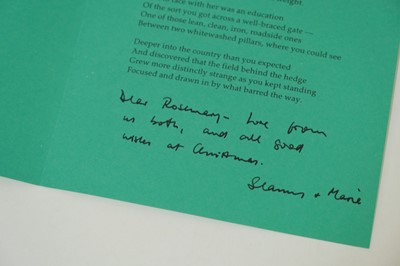 face with her was an education
Of the sort you got across a well-braced gate —
One of those lean, clean, iron, roadside ones
Between two whitewashed pillars, where you could see
Deeper into the country than you expected
And discovered that the field behind the hedge
Grew more distinctly strange as you kept standing
Focused and drawn in by what barred the way.
Dear Rosemary – Love from
us both, and all good
wishes at Christmas.
Seamus + Marie